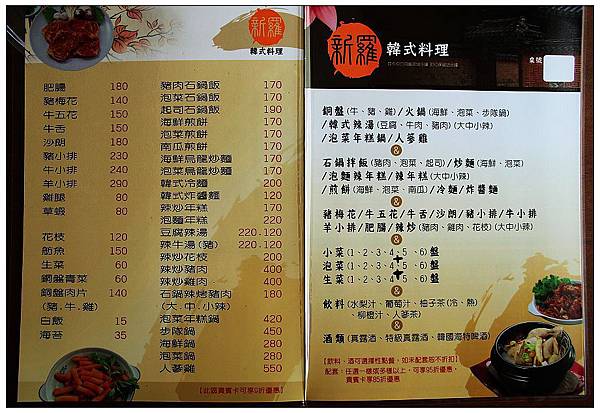 新羅
韓式料理
肥腸 180
豬梅花 140
牛五花 150
牛舌 150
沙朗 180
豬小排 230
牛小排 240
羊小排 290
雞腿 80
草蝦 80
花枝 120
魴魚 150
生菜 60
銅盤青菜 60
銅盤肉片 140
(豬.牛.雞)
白飯 15
海苔 35
豬肉石鍋飯 170
泡菜石鍋飯 170
起司石鍋飯 190
海鮮煎餅 170
泡菜煎餅 170
南瓜煎餅 170
海鮮烏龍炒麵 170
泡菜烏龍炒麵 170
韓式冷麵 200
韓式炸醬麵 120
辣炒年糕 170
泡麵年糕 220
豆腐辣湯 220.120
辣牛湯(豬) 220.120
辣炒花枝 200
辣炒豬肉 400
辣炒雞肉 400
石鍋辣烤豬肉 180
(大.中.小辣)
泡菜年糕鍋 420
步隊鍋 450
海鮮鍋 280
泡菜鍋 280
人蔘雞 550
【此區貴賓卡可享9折優惠】
新羅
韓式料理
桌號
銅盤(牛、豬、雞)/火鍋(海鮮、泡菜、步隊鍋)
/韓式辣湯(豆腐、牛肉、豬肉)(大中小辣)
/泡菜年糕鍋/人蔘雞
&
石鍋拌飯(豬肉、泡菜、起司)/炒麵(海鮮、泡菜)
/泡麵辣年糕/辣年糕(大中小辣)
/煎餅(海鮮、泡菜、南瓜)/冷麵/炸醬麵
&
豬梅花/牛五花/牛舌/沙朗/豬小排/牛小排
羊小排/肥腸/辣炒(豬肉、雞肉、花枝)(大中小辣)
&
小菜(1、2、3、4、5、6)盤
泡菜(1、2、3、4、5、6)盤
生菜(1、2、3、4、5、6)盤
&
飲料(水梨汁、葡萄汁、柚子茶(冷、熱)
、柳橙汁、人蔘茶)
&
酒類(真露酒、特級真露酒、韓國海特啤酒)
【飲料、酒可選擇性點餐，如未配套恕不折扣】
配套：任選一樣或多樣以上，可享95折優惠，
貴賓卡享85折優惠